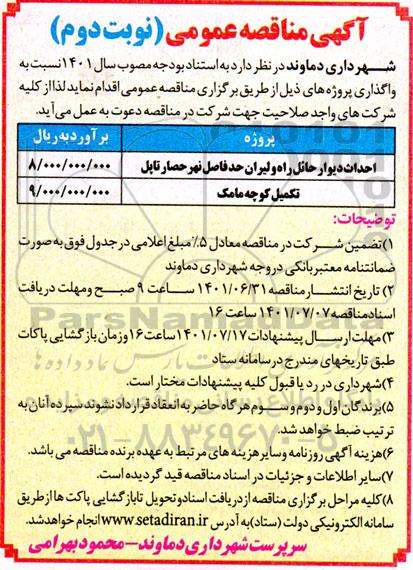 آگهی مناقصه عمومی (نوبت دوم)
شهرداری دماوند در نظر دارد به استناد بودجه مصوب سال ۱۴۰۱ نسبت به
واگذاری پروژه های ذیل از طریق برگزاری مناقصه عمومی اقدام نماید لذا از کلیه
شرکت های واجد صلاحیت جهت شرکت در مناقصه دعوت به عمل می آید.
پروژه برآورد به ریال
احداث دیوار حائل راه ولیران حد فاصل نهر حصار تا پل ۸/۰۰۰/۰۰۰/۰۰۰
تکمیل کوچه مامک ۹/۰۰۰/۰۰۰/۰۰۰
توضیحات:
۱) تضمین شرکت در مناقصه معادل ۵٪ مبلغ اعلامی در جدول فوق به صورت
ضمانتنامه معتبر بانکی در وجه شهرداری دماوند
۲) تاریخ انتشار مناقصه ۱۴۰۱/۰۶/۳۱ ساعت ۹ صبح و مهلت دریافت
اسناد مناقصه ۱۴۰۱/۰۷/۰۷ ساعت ۱۶
۳) مهلت ارسال پیشنهادات ۱۴۰۱/۰۷/۱۷ ساعت ۱۶ وزمان بازگشایی پاکات
طبق تاریخهای مندرج در سامانه ستاد
۴) شهرداری در رد یا قبول کلیه پیشنهادات مختار است.
۵) برندگان اول و دوم و سوم هرگاه حاضر به انعقاد قرارداد نشوند سپرده آنان به
ترتیب ضبط خواهد شد.
۶) هزینه آگهی روزنامه وسایر هزینه های مرتبط به عهده برنده مناقصه می باشد.
۷) سایر اطلاعات و جزئیات در اسناد مناقصه قید گردیده است.
۸) کلیه مراحل برگزاری مناقصه از دریافت اسناد و تحویل تا بازگشایی پاکت ها از طریق
سامانه الکترونیکی دولت (ستاد) به آدرس www.setadiran.ir انجام خواهد شد.
سرپرست شهرداری دماوند - محمود بهرامی
ParsNamadData
۰۲۱-۸۸۳۴۹۶۷۰-۵